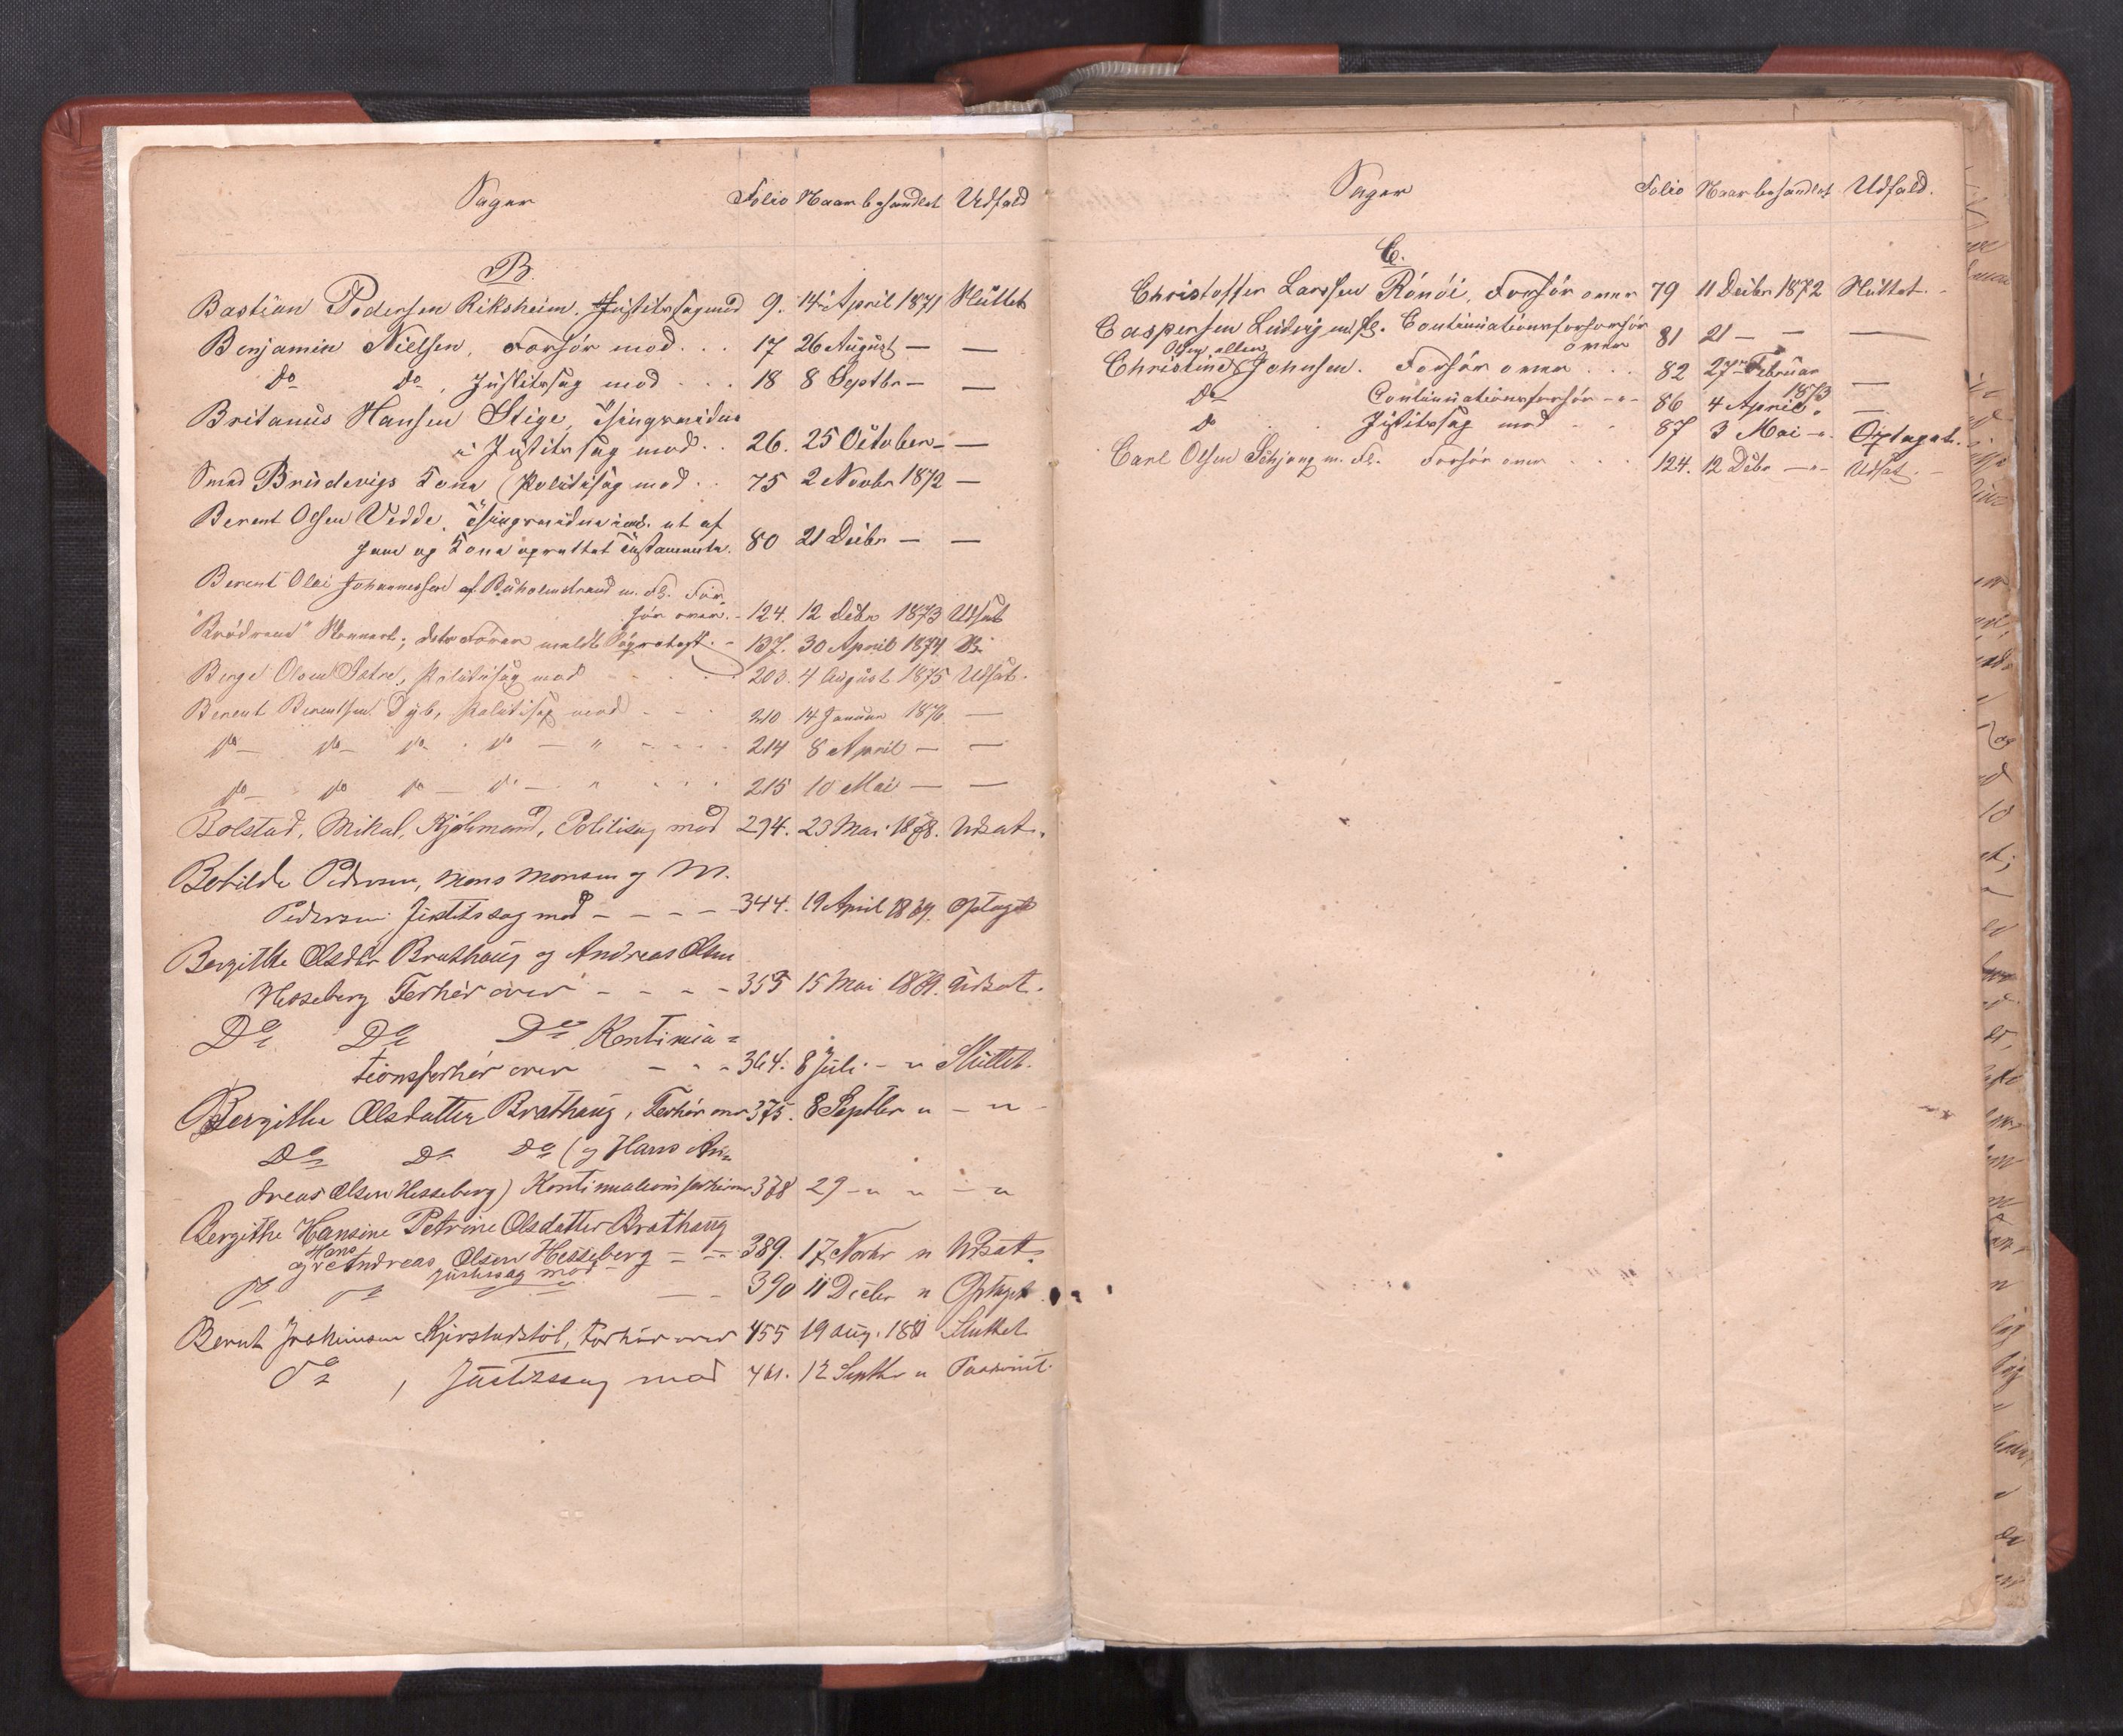 Sager Folio Naar behandlet Udfald
B.
Bastian Pedersen Riksheim. Justitssag mod 9. 14 April 1871 Sluttet
Benjamin Nielsen, Forhør mod . . . 17 26 August — —
Do Do, Justitssag mod . . . 18 8 Septbr — —
Britanus Hansen Stige,
i Justitssag mod . . 26. 25 October — —
Smed Brudevigs Kone (Politisag mod . . 75 2 Novbr 1872 —
Berent Olsen Vedde, ut af
ham og Kone oprettet Testamente. 80 21 Decbr — —
Berent Olai Johannessen af Buholmstrand m. Fl. For-
hør over. - 124. 12 Decbr 1873 Udsat
"Brødrene" 137. 30 April 1874
Berge Olsen Sætre, Politisag mod 203. 4 August 1875 Udsat.
Berent Berentsen Dyb, Politisag mod - - 210 14 Januar 1876 —
do — do — do . do — " - - - . 214 8 April — —
do — do do — do — " . . . 215 10 Mai — —
Bolstad, Mikal, Kjølmand, Politisag mod 294. 23 Mai 1878. Udsat.
Botilde Pedersen, Mons Monsen og M.
Pedersen Justitssag mod - - - - 344. 19 April 1879. Optaget
Bergitte Olsdtr Brathaug og Andreas Olsen
Hesseberg Forhør over - - - - 355 15 Mai 1879. Udsat.
Do Do Do Kontinua=
tionsforhør over - - - 364. 8 Juli - " Sluttet.
Bergithe Olsdatter Brathaug, Forhør over 375. 8 Septbr " - "
Do Do Do (og Hans An=
dreas Olsen Hesseberg) Kontinuationsforhør over 378 29 - " " - "
Bergithe Hansine Petrine Olsdatter Brathaug
og Hans Andreas Olsen Hesseberg - - - 389. 17 Novbr " Udsat.
Justitssag mod
Do Do — - 390 11 Decbr " Optaget
Bernt Joakimsen Kjørstadstøl, Forhør over 455 19 Aug. 1881 Sluttet
Do, Justitssag mod 461. 12 Septbr "
Sager Folio Naar behandlet Udfald.
C.
Christoffer Larssen Rønøi, Forhør over 79 11 Decbr 1872 Sluttet.
Caspersen Ludvig m. fl. Continuationsforhør
over 81 21 — — —
Olsen eller
Christine Johnsen. Forhør over . . . 82 27 Februar
1873 —
Do Continuationsforhør -"- 86 4 April " —
Do Justitssag mod - - 87 3 Mai -"- Optaget.
Carl Olsen Schjong m. Fl. Forhør over . . . 124. 12 Decbr —"— Udsat. —